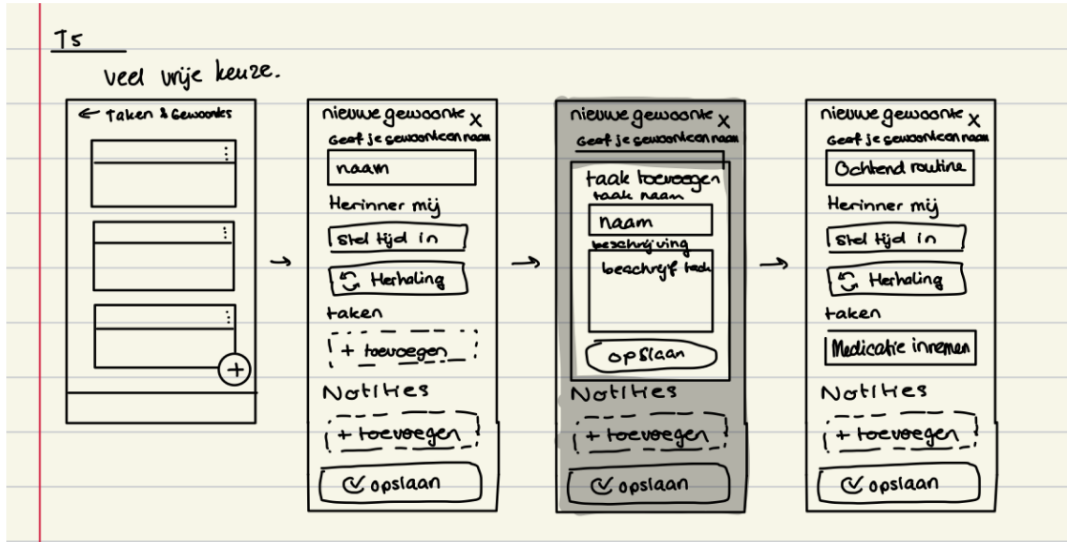 T5
veel vrije keuze.
← Taken & Gewoontes
nieuwe gewoonte x
Geef je gewoonte een naam
naam
Herinner mij
Stel tijd in
Herhaling
taken
+ toevoegen
Notities
+ toevoegen
opslaan
nieuwe gewoonte x
Geef je gewoonte een naam
taak toevoegen
taak naam
naam
beschrijving
beschrijf taak
opslaan
Notities
+ toevoegen
opslaan
nieuwe gewoonte x
Geef je gewoonte een naam
Ochtend routine
Herinner mij
Stel tijd in
Herhaling
taken
Medicatie innemen
Notities
+ toevoegen
opslaan